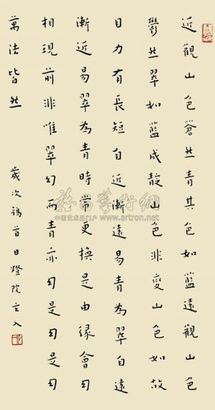 近觀山色蒼然青其色如藍遠觀山色
鬱然翠如藍成靛山色非變山色如故
目力有長短自近漸遠易青為翠自遠
漸近易翠為青時常更換是由緣會幻
相現前非唯翠幻而青亦幻是幻是幻
萬法皆然 歲次 首日
www.artron.net